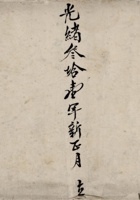 光緒叁拾壹年新正月 立